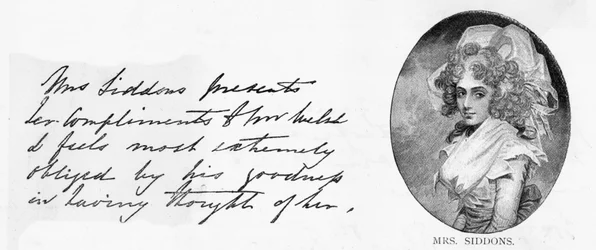 Mrs Siddons presents
her Compliments to Mr Welsh
& feels most extremely
obliged by his goodness
in having thought of her.
MRS. SIDDONS.